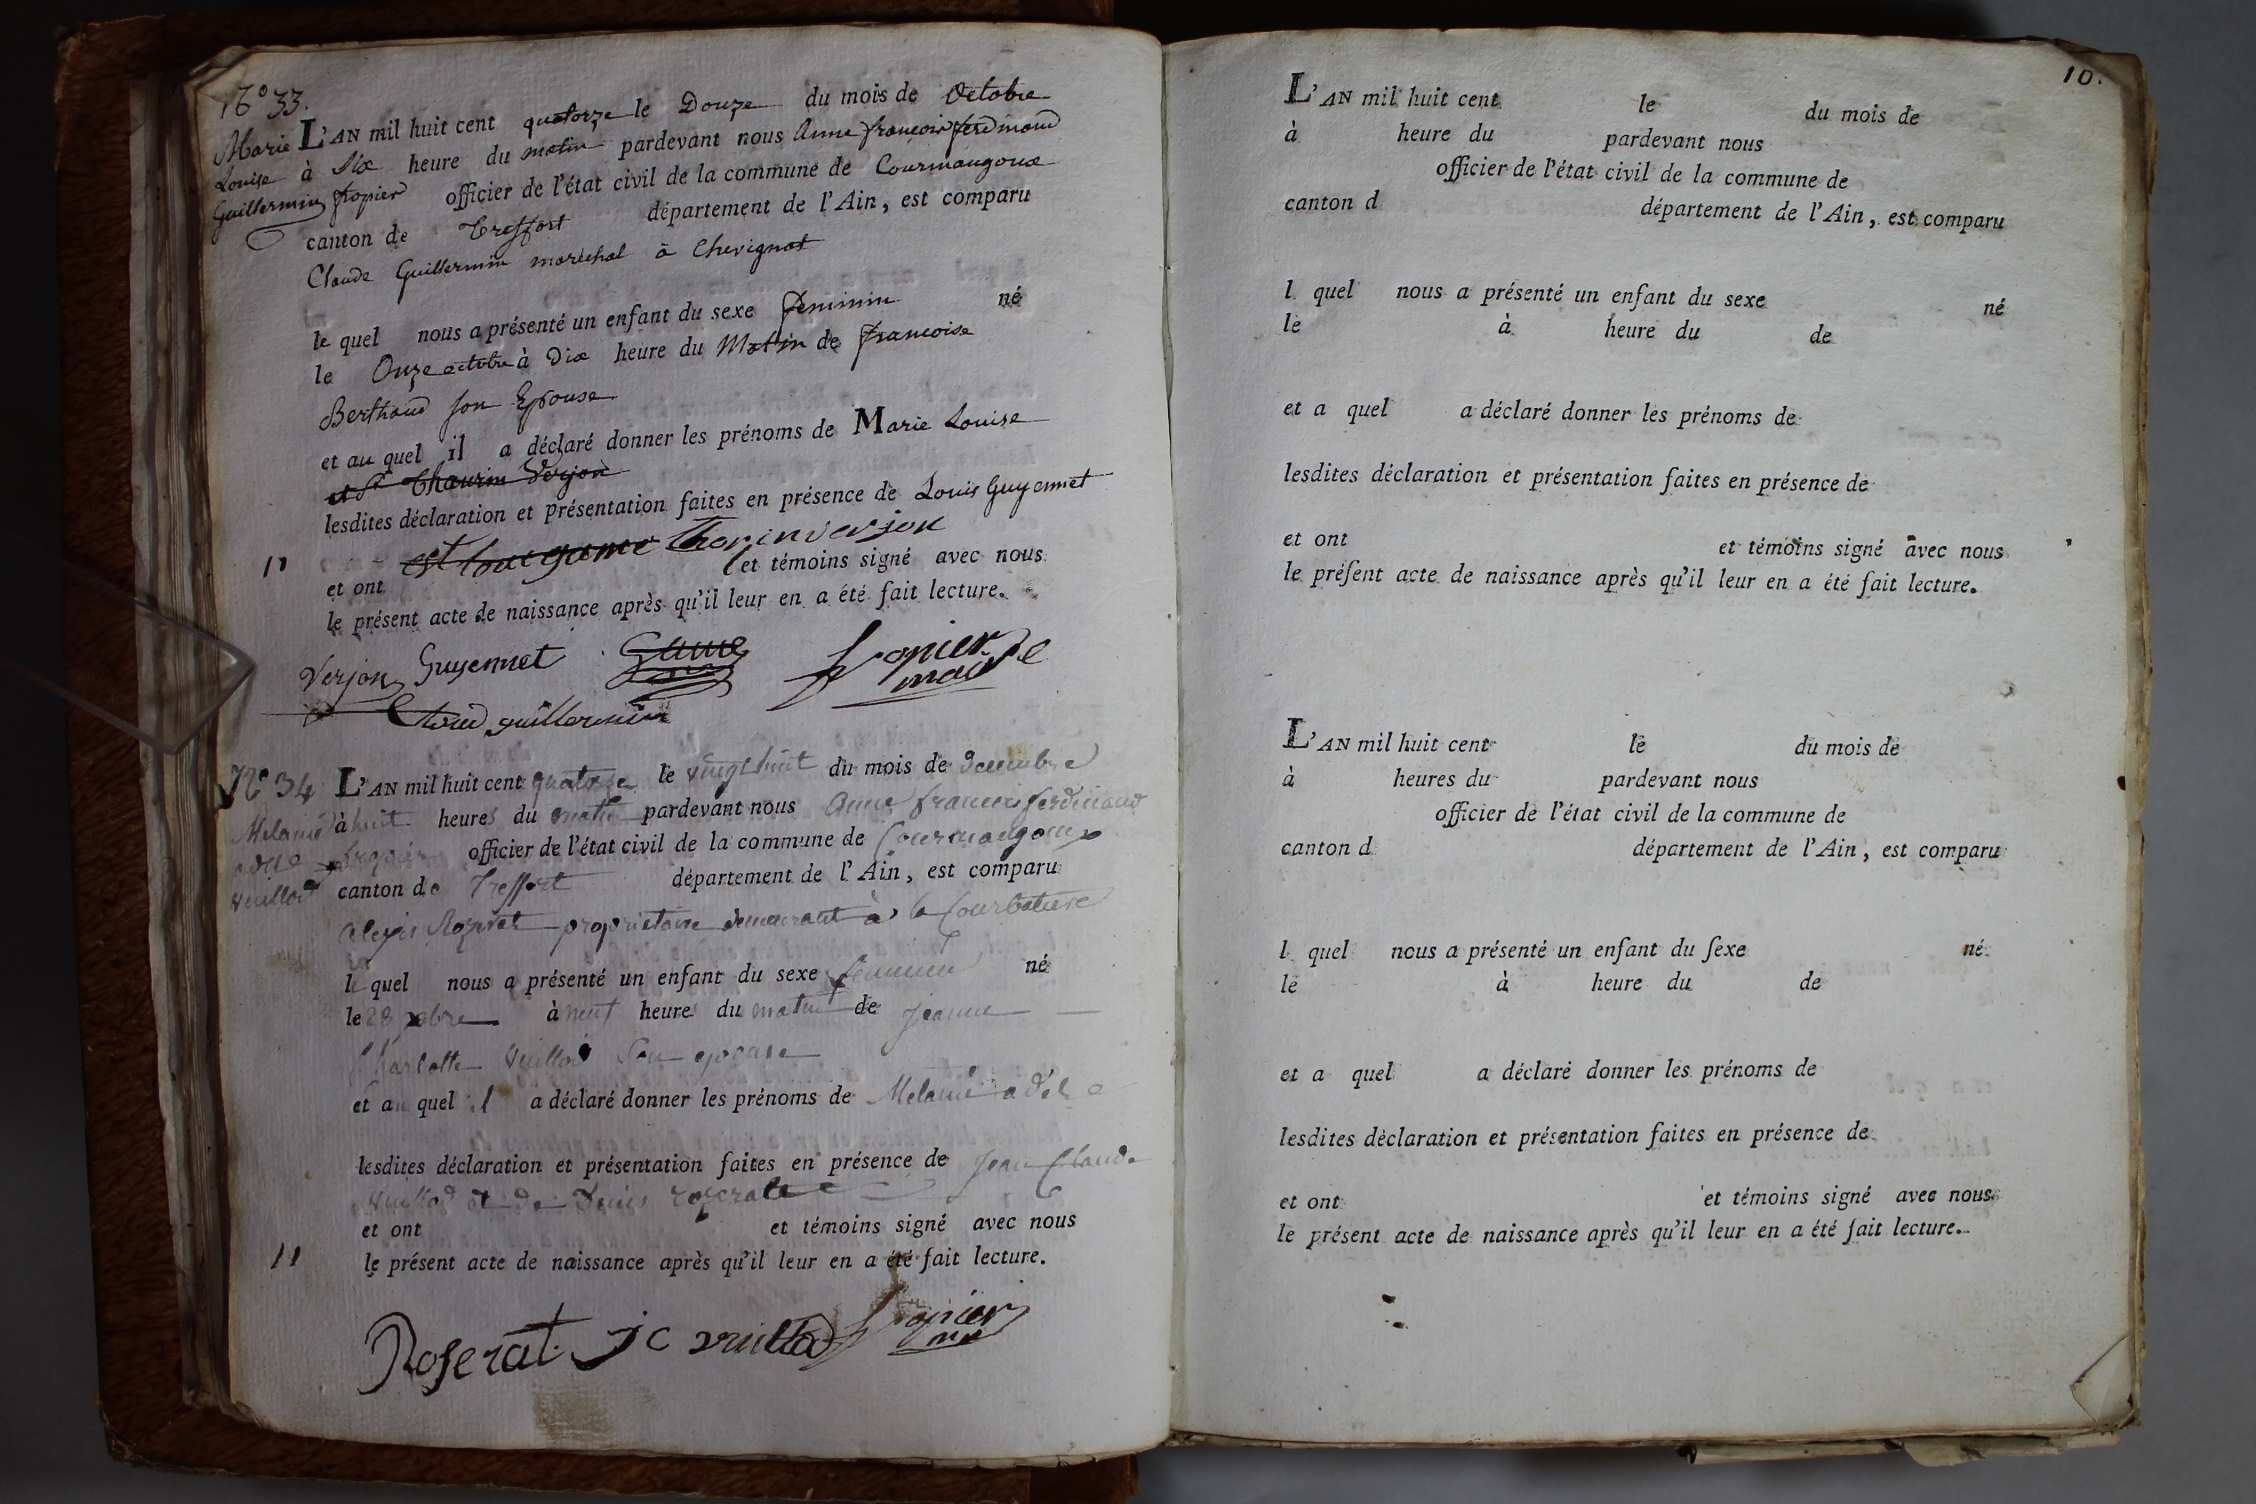 N° 33.
Marie
Louise
Guillermin
L'AN mil huit cent quatorze le Douze du mois de Octobre
à Six heure du matin pardevant nous Anne françois ferdinand
fropier officier de l'état civil de la commune de Courmangoux
canton de Treffort département de l'Ain, est comparu
Claude Guillermin maréchal à Chevignat
le quel nous a présenté un enfant du sexe feminin né
le Onze octobre à Dix heure du Matin de francoise
Berthaud son Epouse
et au quel il a déclaré donner les prénoms de Marie Louise
et Sr Thaurin Verjon
lesdites déclaration et présentation faites en présence de Louis Guyennet
et Thorin verjon
et ont et témoins signé avec nous
le présent acte de naissance après qu'il leur en a été fait lecture.
Verjon Guyennet fropier
maire
Claud guillermin
N° 34
Melanie
adele
vuillod
L'AN mil huit cent quatorze le vingt huit du mois de decembre
à huit heures du matin pardevant nous Anne francois ferdinand
fropier officier de l'état civil de la commune de Courmangoux
canton de Treffort département de l'Ain, est comparu
alexis Rozerat proprietaire demeurant à la Courbatiere
le quel nous a présenté un enfant du sexe feminin né
le 28 xbre à neuf heures du matin de jeanne
Charlotte vuillod son epouse
et au quel il a déclaré donner les prénoms de Melanie adele
lesdites déclaration et présentation faites en présence de jean Claude
vuillod et de Denis rozerat
et ont et témoins signé avec nous
11 le présent acte de naissance après qu'il leur en a été fait lecture.
Roserat jc vuillod fropier
10.
L'AN mil huit cent le du mois de
à heure du pardevant nous
officier de l'état civil de la commune de
canton d département de l'Ain, est comparu
l quel nous a présenté un enfant du sexe né
le à heure du de
et a quel a déclaré donner les prénoms de
lesdites déclaration et présentation faites en présence de
et ont et témoins signé avec nous
le présent acte de naissance après qu'il leur en a été fait lecture.
L'AN mil huit cent le du mois de
à heures du pardevant nous
officier de l'état civil de la commune de
canton d département de l'Ain, est comparu
l quel nous a présenté un enfant du sexe né
le à heure du de
et a quel a déclaré donner les prénoms de
lesdites déclaration et présentation faites en présence de
et ont et témoins signé avec nous
le présent acte de naissance après qu'il leur en a été fait lecture.